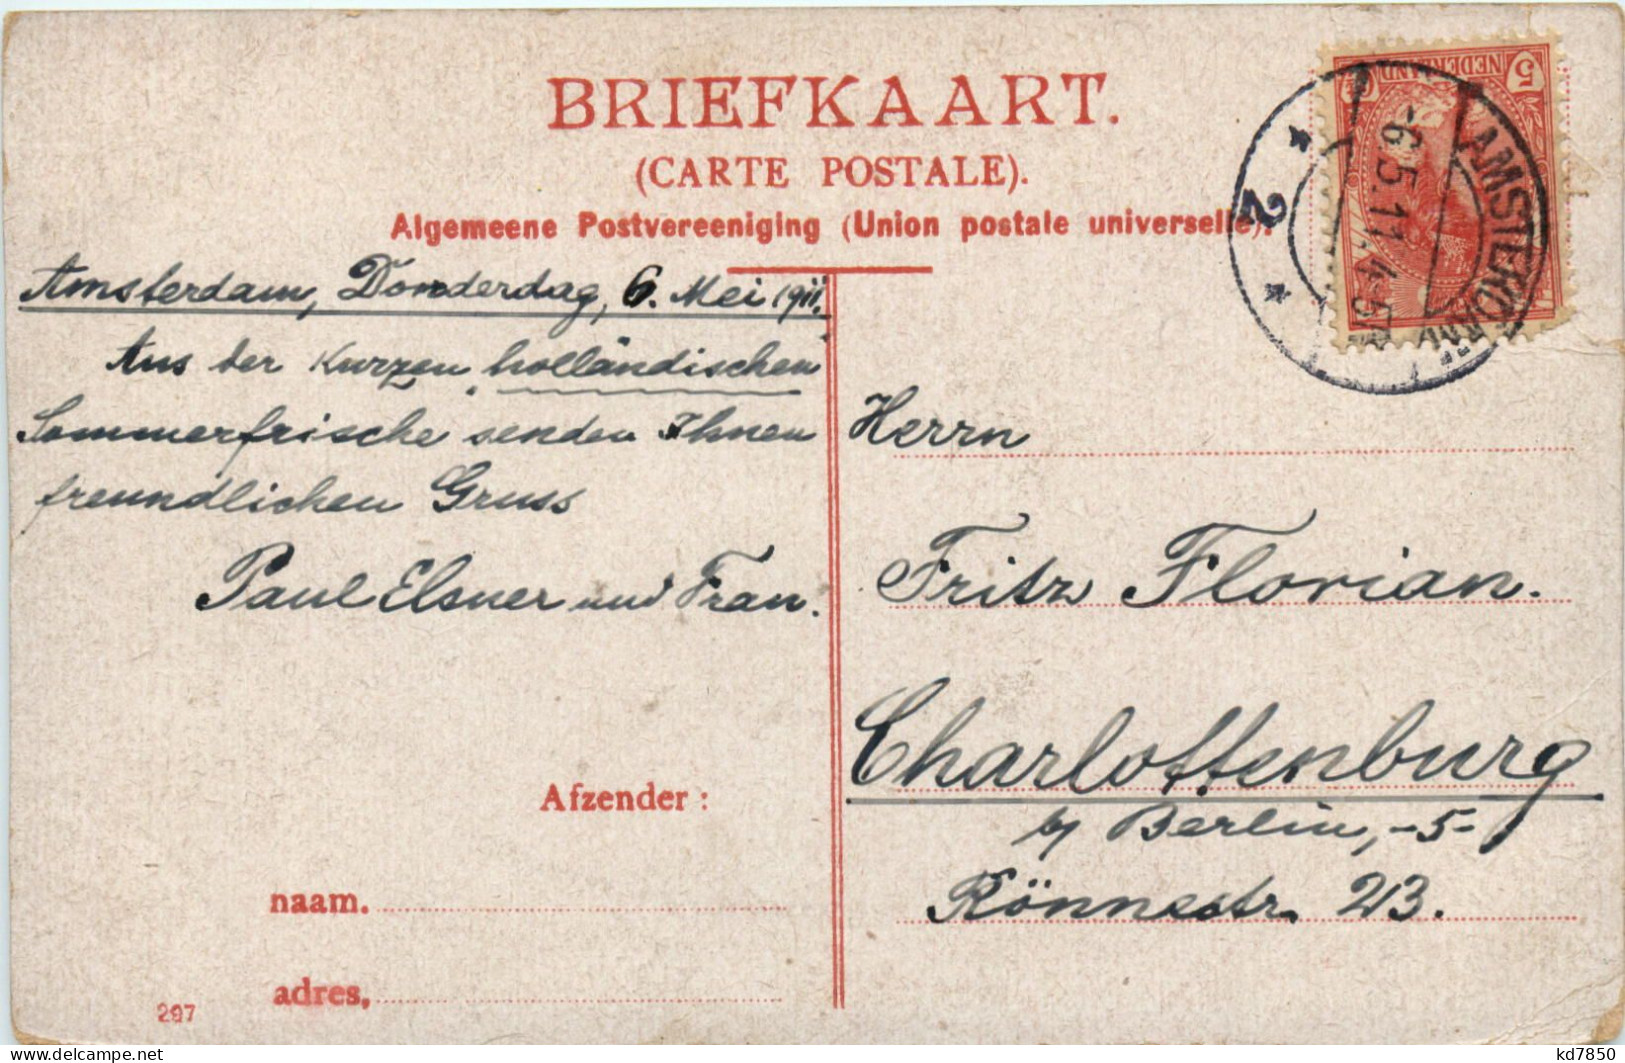 BRIEFKAART.
(CARTE POSTALE).
Algemeene Postvereeniging (Union postale universelle).
5 NEDERLAND 5
AMSTERDAM
-6.5.11. 4-5N
* 2 *
Amsterdam, Donderdag, 6. Mei 1911.
Aus der kurzen holländischen
Sommerfrische senden Ihnen
freundlichen Gruss
Paul Elsner und Frau.
Herrn
Fritz Florian.
Charlottenburg
b/ Berlin, -5-
Rönnestr. 23.
Afzender:
naam.
adres,
297
kd7850